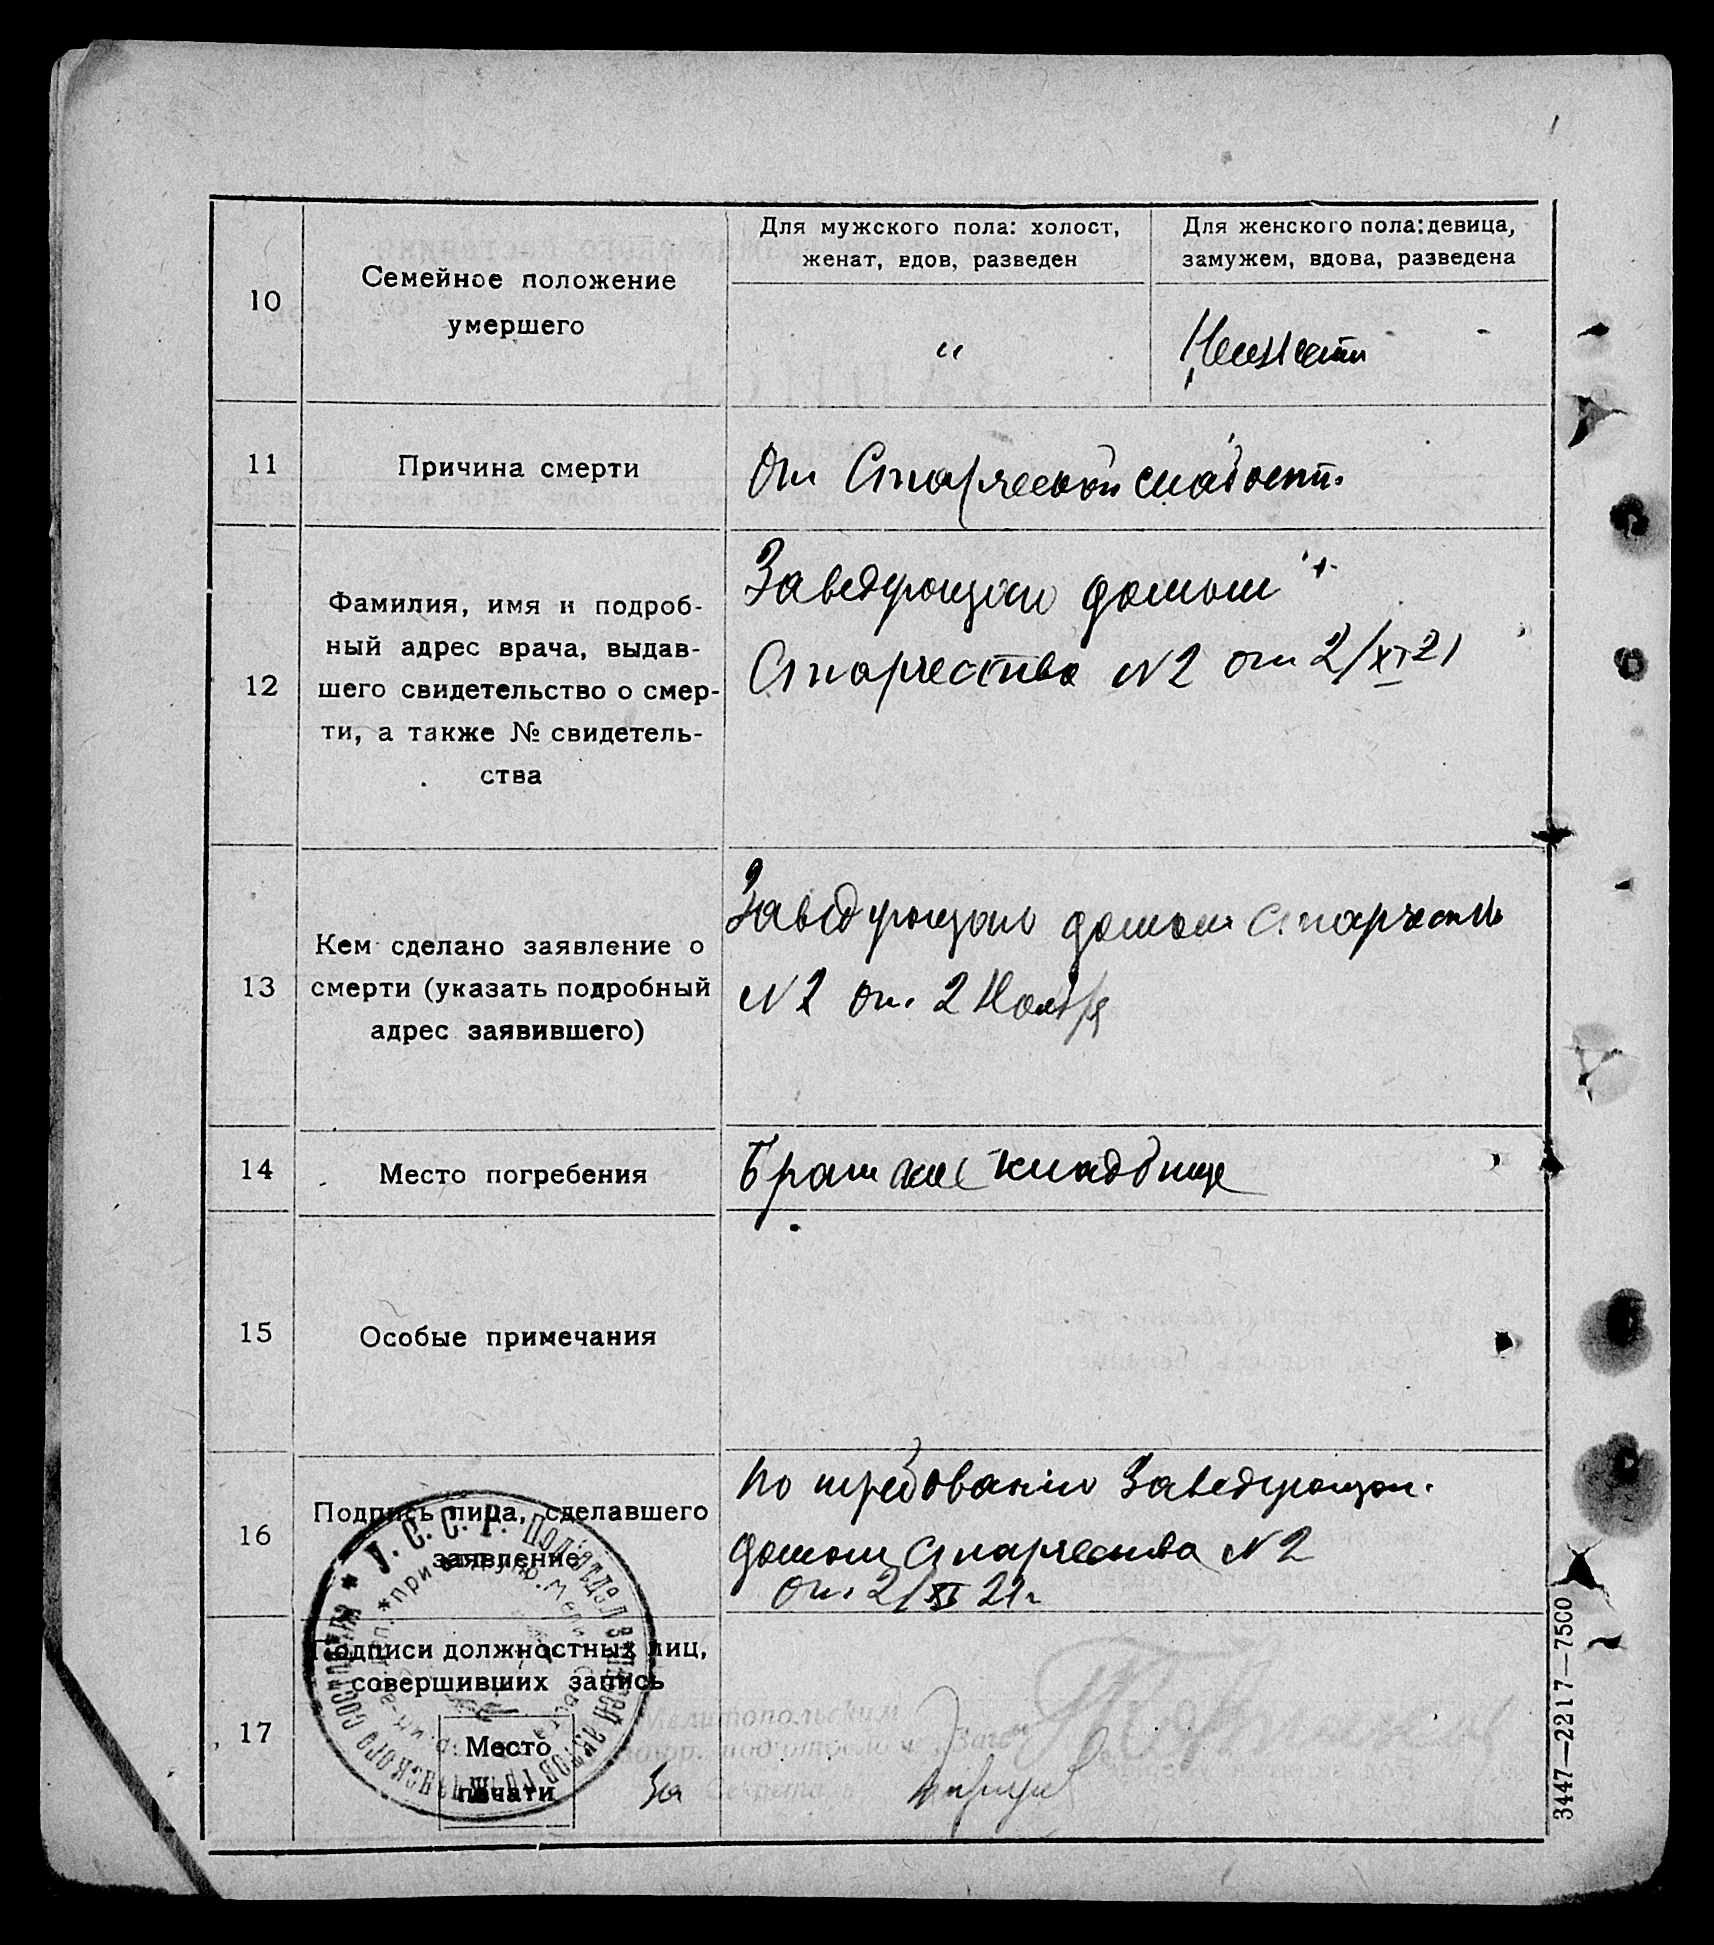 10
Семейное положение
умершего
Для мужского пола: холост,
женат, вдов, разведен
Для женского пола: девица,
замужем, вдова, разведена
"
11
Причина смерти
От Старческой слабости.
12
Фамилия, имя и подроб-
ный адрес врача, выдав-
шего свидетельство о смер-
ти, а также № свидетель-
ства
Заведующаю домом
Старчества №2 от 2/XI 21
13
Кем сделано заявление о
смерти (указать подробный
адрес заявившего)
Заведующаю домом старчества
№2 от 2 Ноября
14
Место погребения
Братское кладбище
15
Особые примечания
16
Подпись лица, сделавшего
заявление
По требованию Заведующаю
домом старчества №2
от 2/XI 21 г
17
Подписи должностных лиц,
совершивших запись
Место
печати
* У. С. С. Р. Подотдел записей актов гражданского состояния
Мелитопольским
За
3447—2217—7500